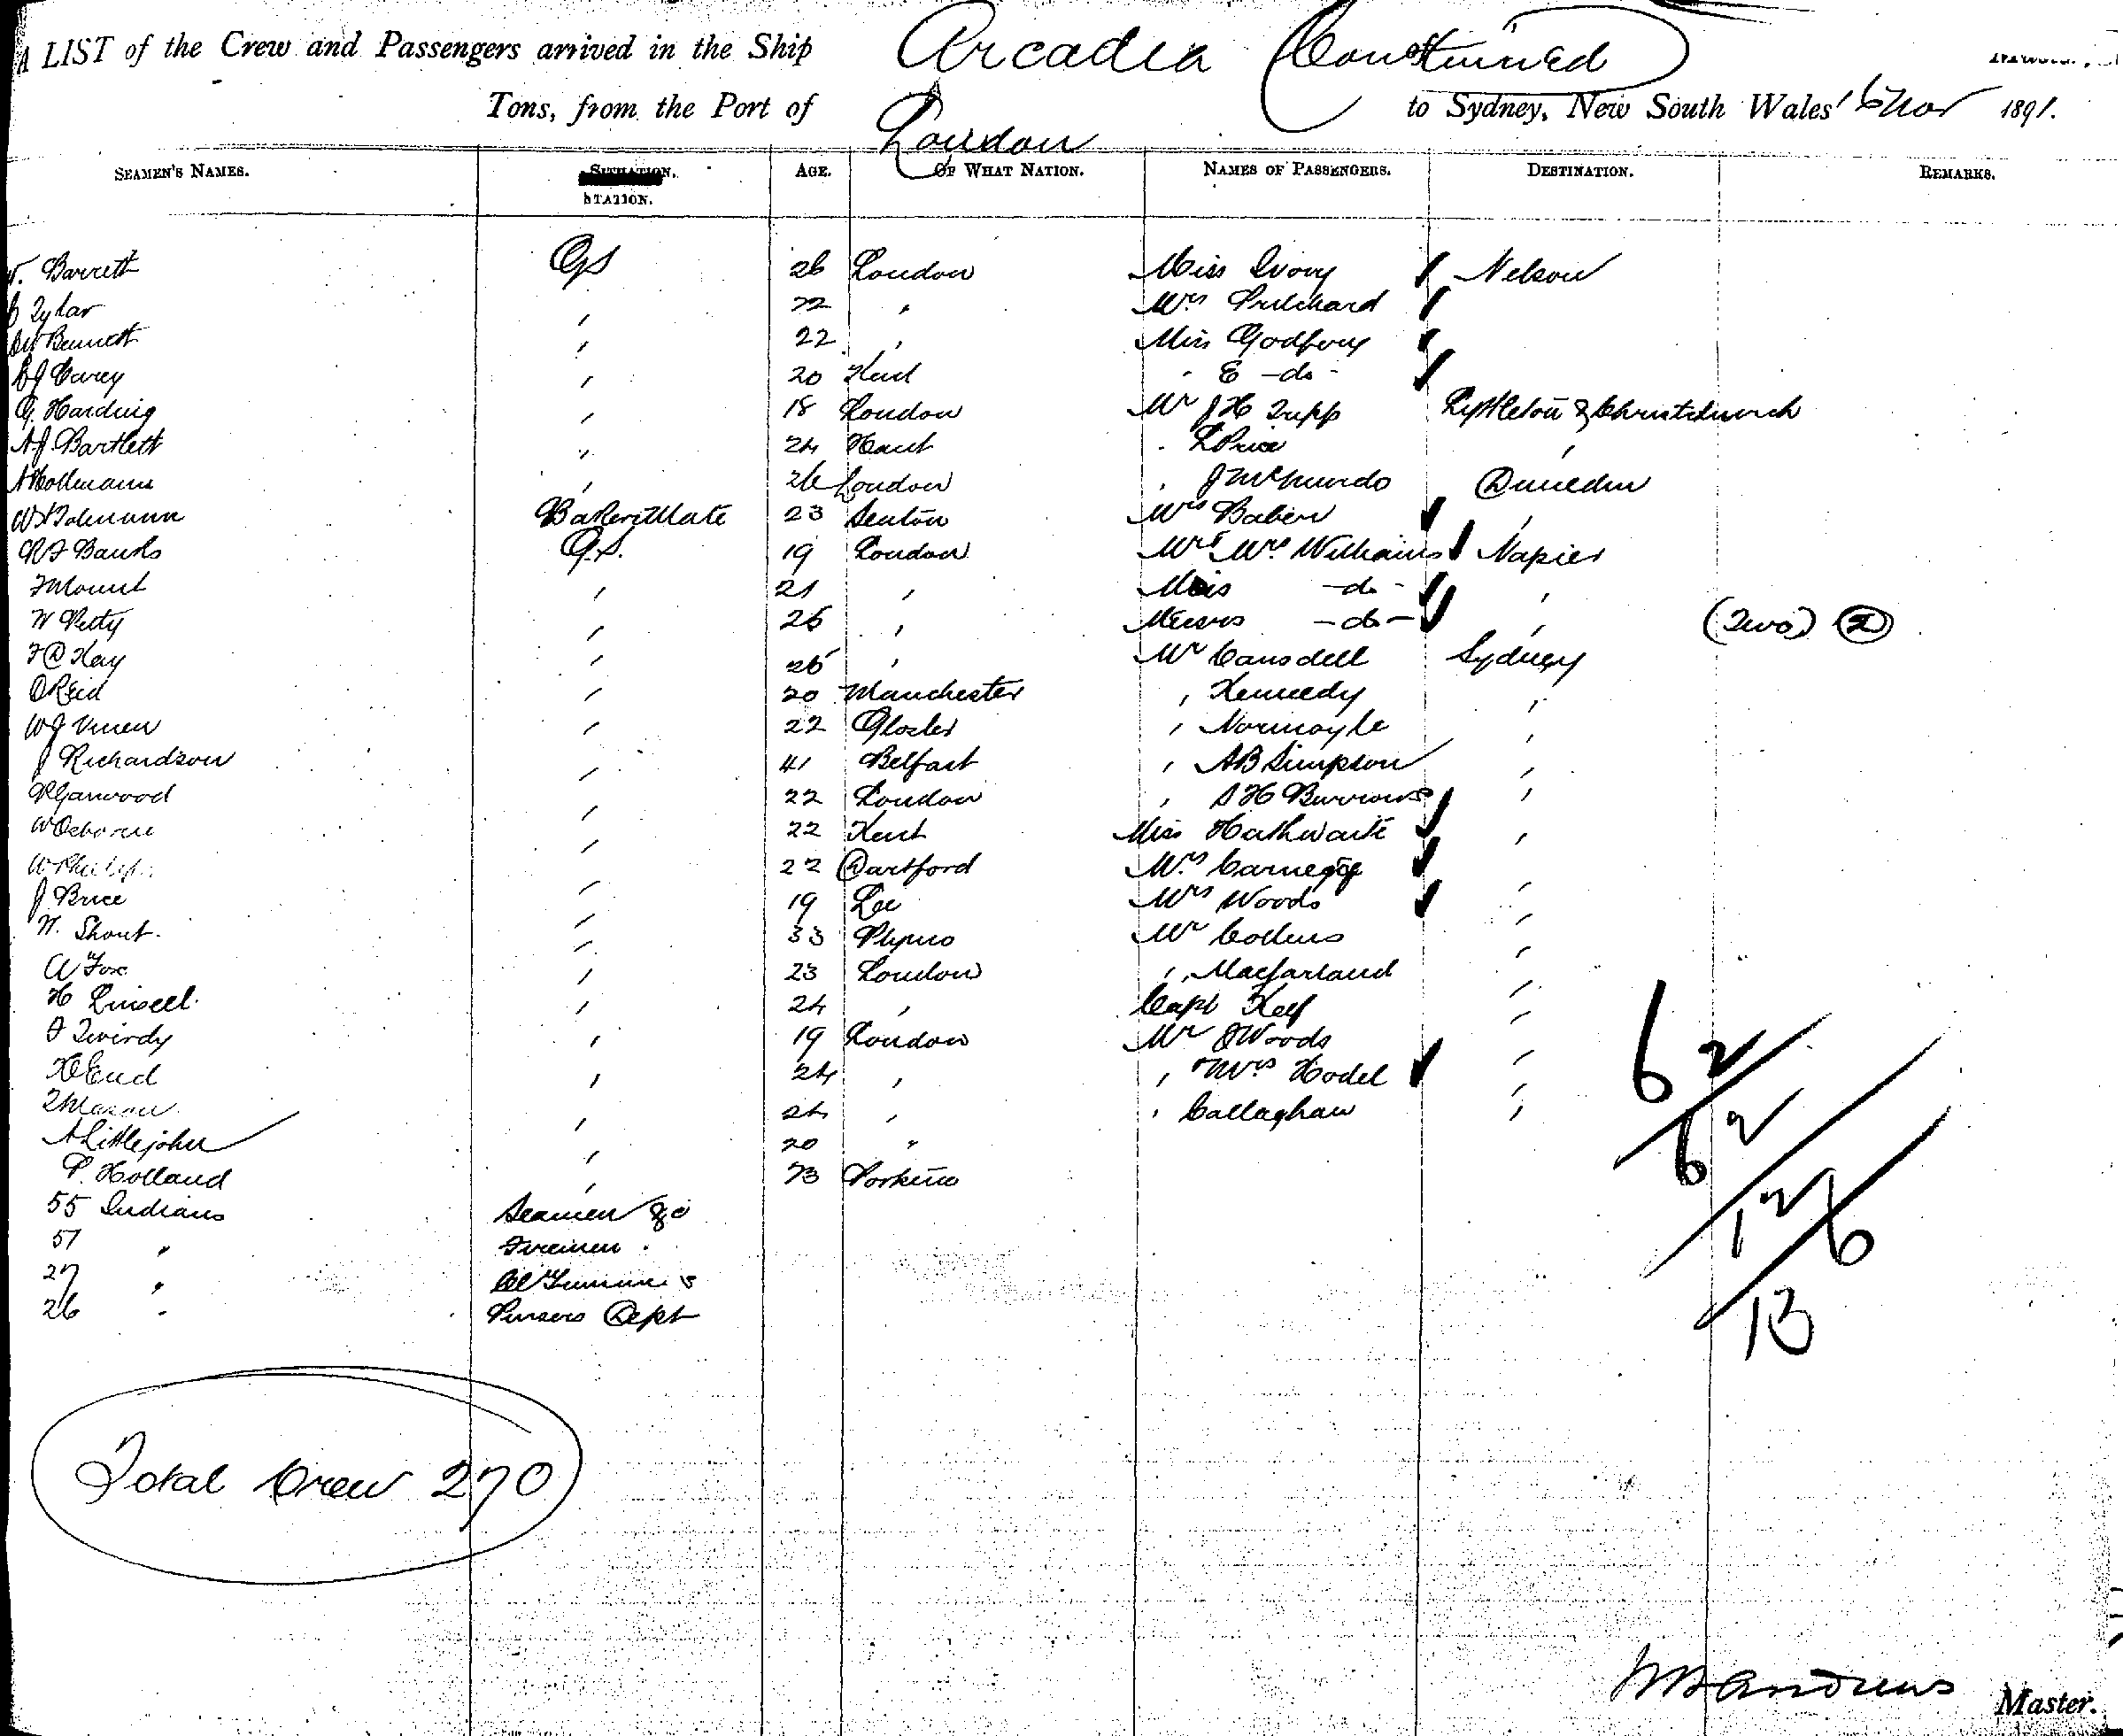 A LIST of the Crew and Passengers arrived in the Ship Arcadia Continued
Tons, from the Port of London to Sydney, New South Wales 6 Nov 1891.
SEAMEN'S NAMES. SITUATION. STATION. AGE. OF WHAT NATION. NAMES OF PASSENGERS. DESTINATION. REMARKS.
Barrett GS 26 London Miss Ivory Nelson
22 " Mrs Pritchard
Bennett " 22 " Miss Godfrey
Carey " 20 Kent " E -do-
G. Harding " 18 London Mr J H Tupp Lyttleton & Christchurch
A J Bartlett " 24 " L Price "
" 26 London " J McMurdo Dunedin
Bakers Mate 23 Mrs Baben "
Banks G.S. 19 London Mr & Mrs Williams Napier
F Mount " 21 " Miss -do- "
W Petty " 25 " Messrs -do- " (Two) 2
F D Kay " 25 " Mr Cansdell Sydney
O Reid " 20 Manchester " Kennedy "
W J " 22 Gloster " Normoyle "
J Richardson " 41 Belfast " A B Simpson "
Garwood " 22 London " S H Burrows "
W Osborne " 22 Kent Miss Hathwaite "
W " 22 Dartford Mrs Carnegie "
J Brice " 19 Lee Mrs Woods "
W. Shout. " 33 Mr Collins "
A Fox " 23 London " Macfarland "
H Linsell. " 24 " Capt "
Twirdy " 19 London Mr J Woods "
End " 24 " " & Mrs Hodel "
Mason " 24 " " Callaghan "
A Littlejohn " 20 "
P. Holland " 23
55 Indians Seamen &c
51 " Firemen
27 "
26 " Pursers Dept
62
62
12 6
13
Total Crew 270
Andrews Master.